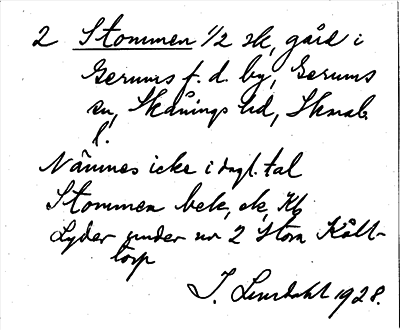 2 Stommen 1/2 sk, gård i
Gerums f. d. by, Gerums
sn, Skånings hd, Skarab.
l.
Nämnes icke i dagl. tal
Stommen bek, ck, Kb
Lyder under nr 2 Stora Kålltorp
J. Lindahl 1928.